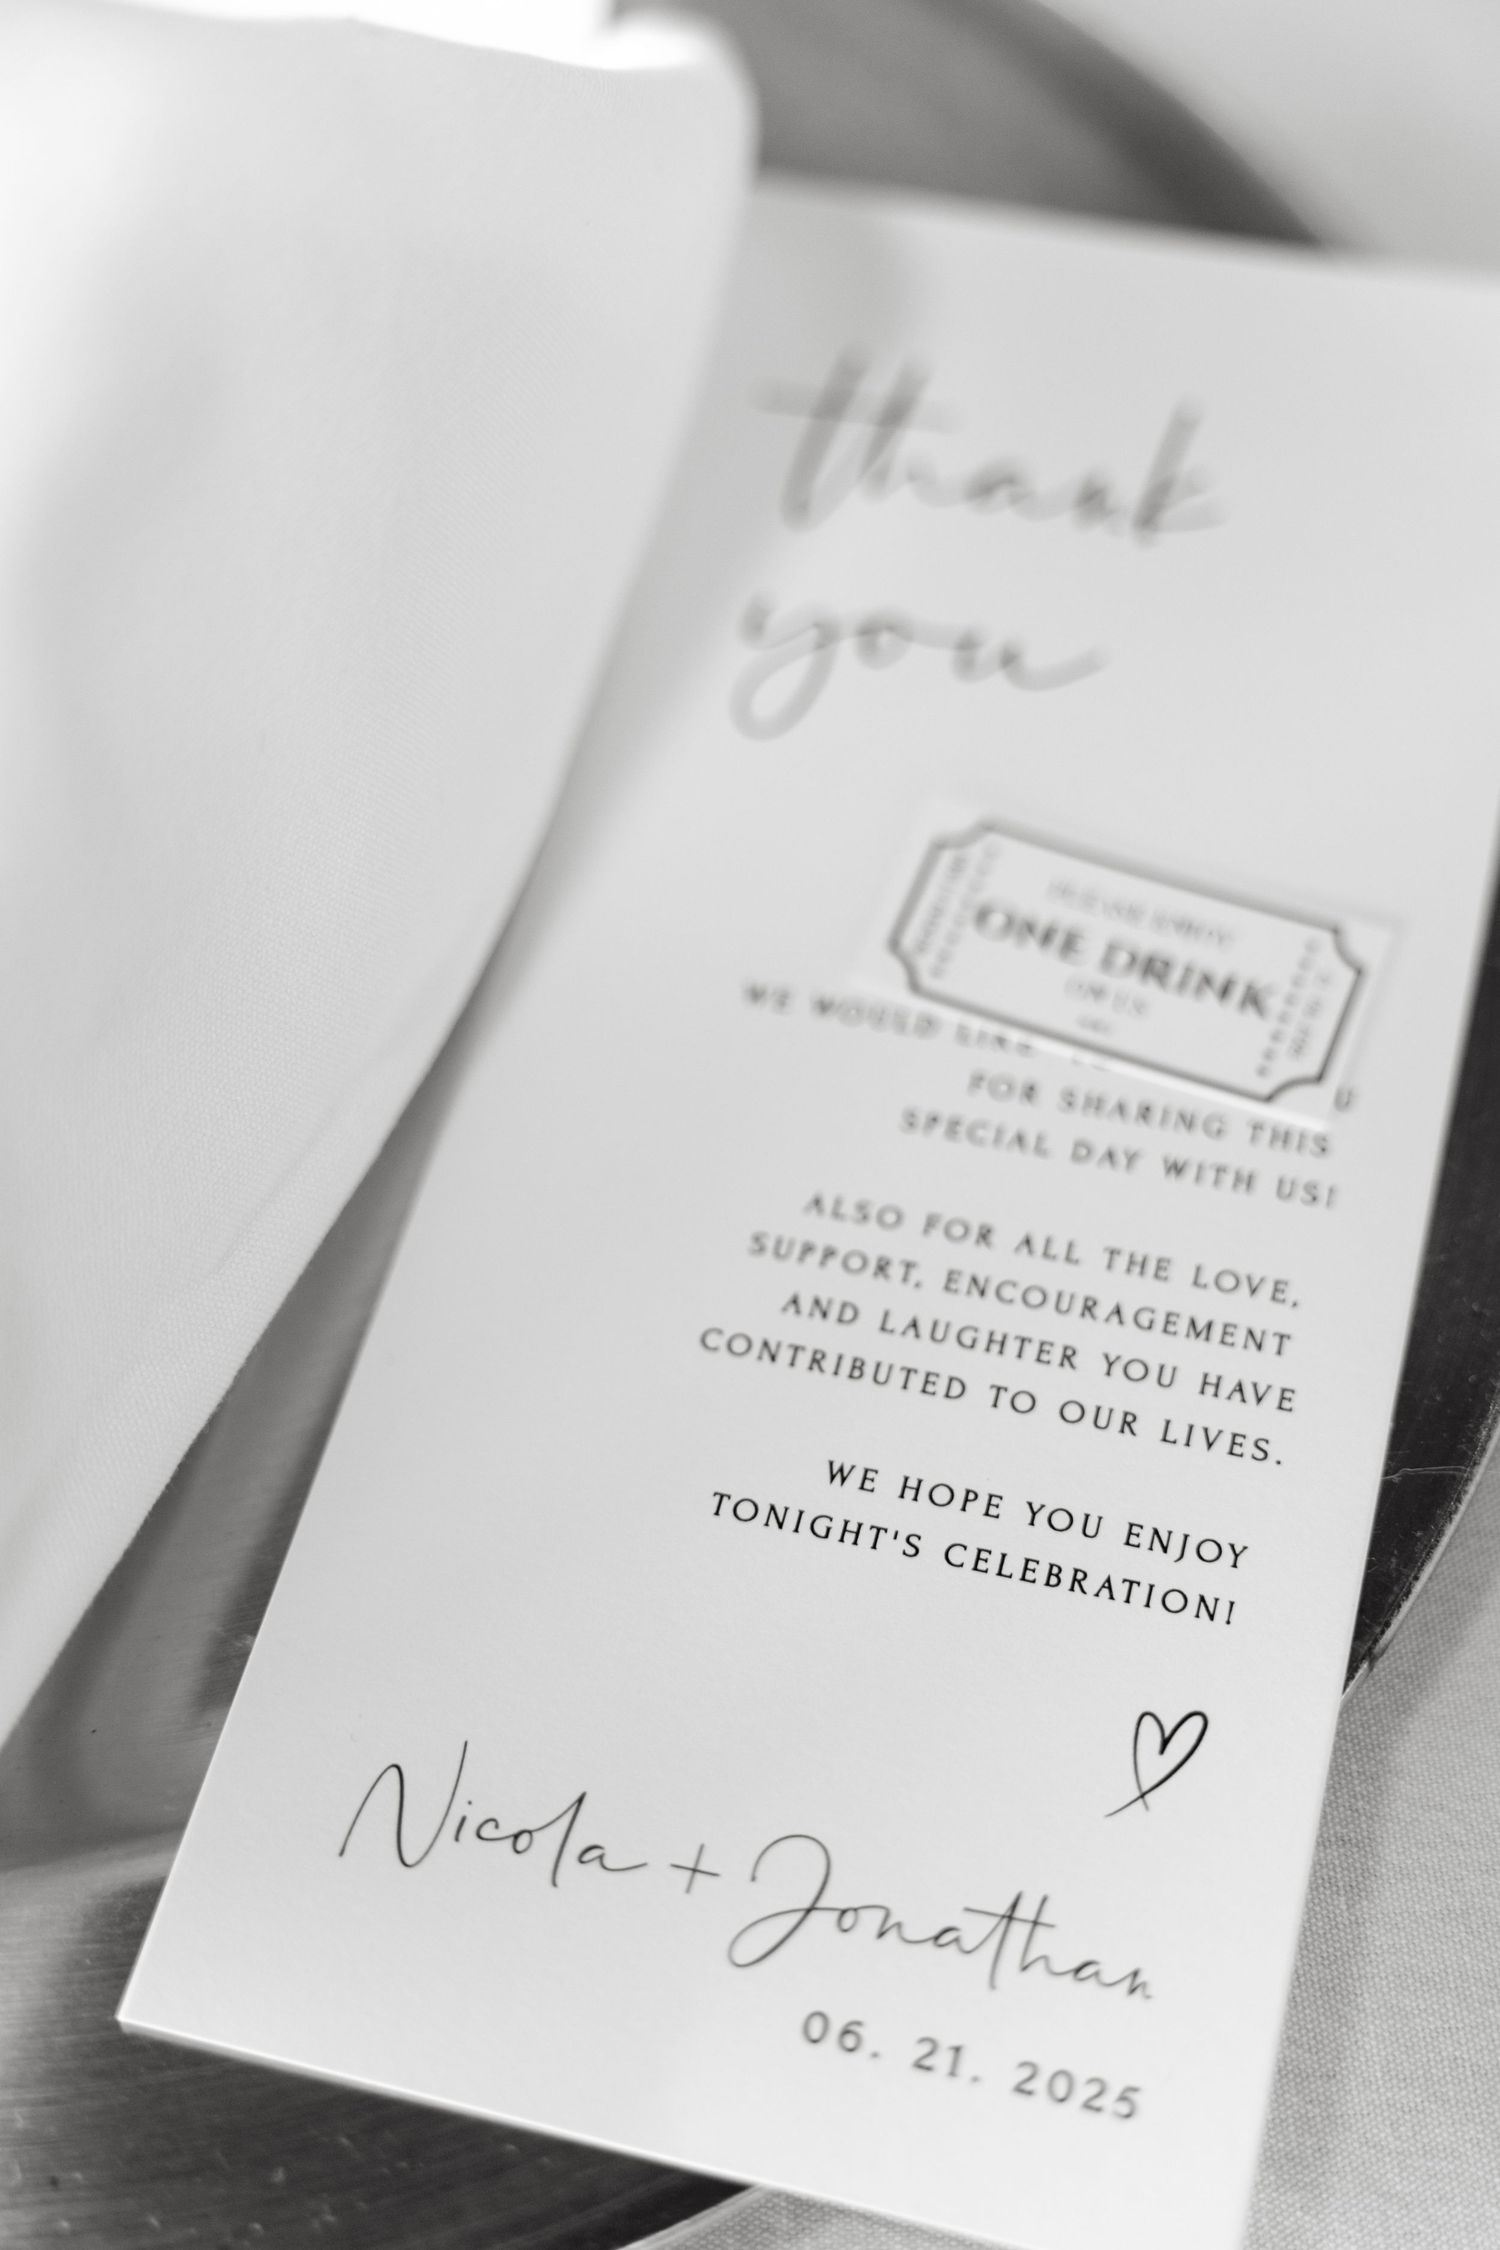 thank
you
PLEASE ENJOY
ONE DRINK
ON US
WE WOULD LIKE
U
FOR SHARING THIS
SPECIAL DAY WITH US!
ALSO FOR ALL THE LOVE,
SUPPORT, ENCOURAGEMENT
AND LAUGHTER YOU HAVE
CONTRIBUTED TO OUR LIVES.
WE HOPE YOU ENJOY
TONIGHT'S CELEBRATION!
Nicola + Jonathan
06. 21. 2025